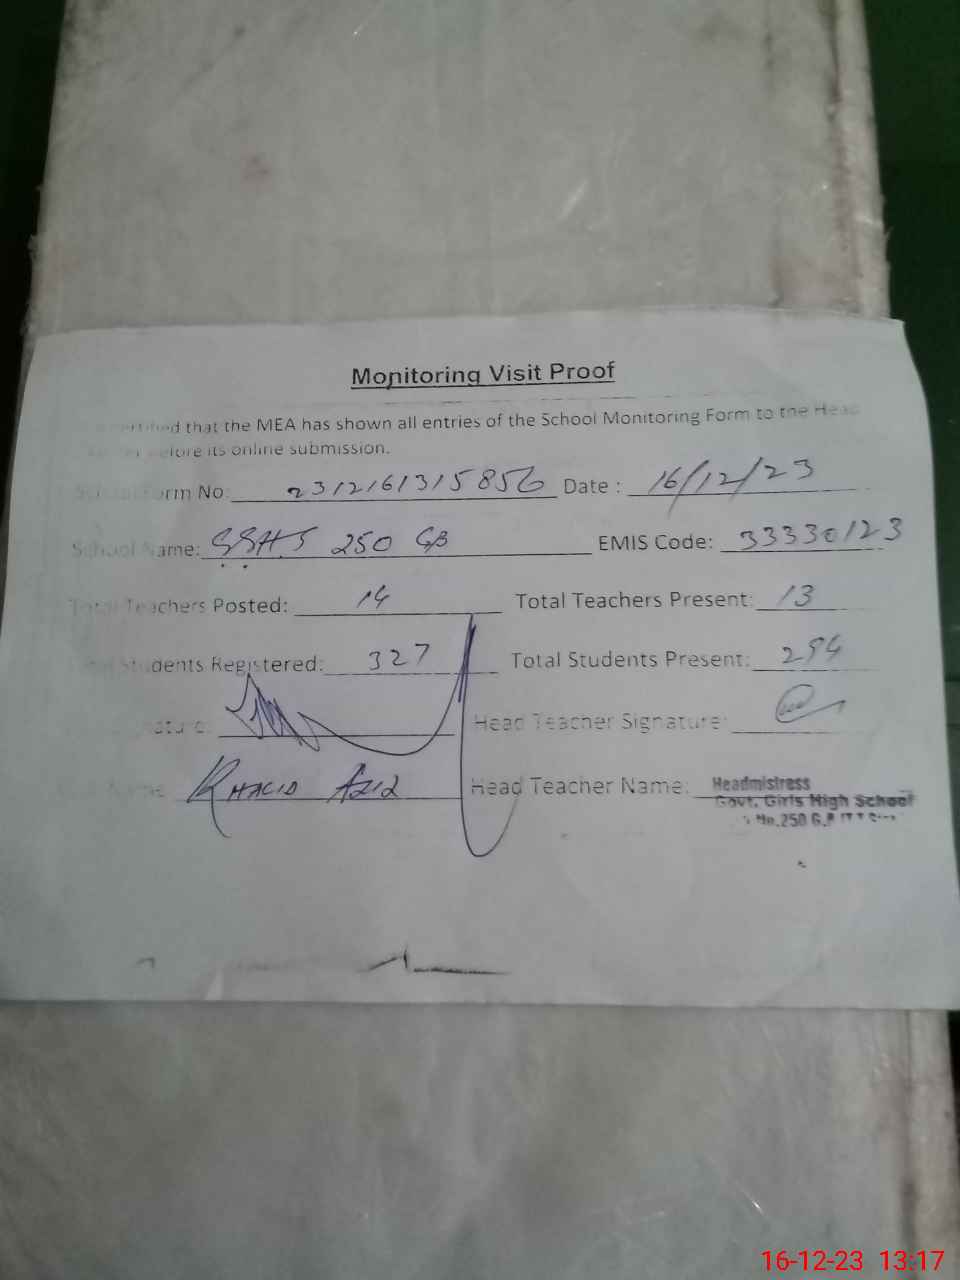 Monitoring Visit Proof
certified that the MEA has shown all entries of the School Monitoring Form to the Head
before its online submission.
School Form No: 231216131585 Date: 16/12/23
School Name: GGHS 250 GB EMIS Code: 33330123
Total Teachers Posted: 14 Total Teachers Present: 13
Total Students Registered: 327 Total Students Present: 294
Head Teacher Signature:
Name KHALID AZIZ Head Teacher Name: Headmistress
Govt. Girls High School
No.250 G.B
16-12-23 13:17